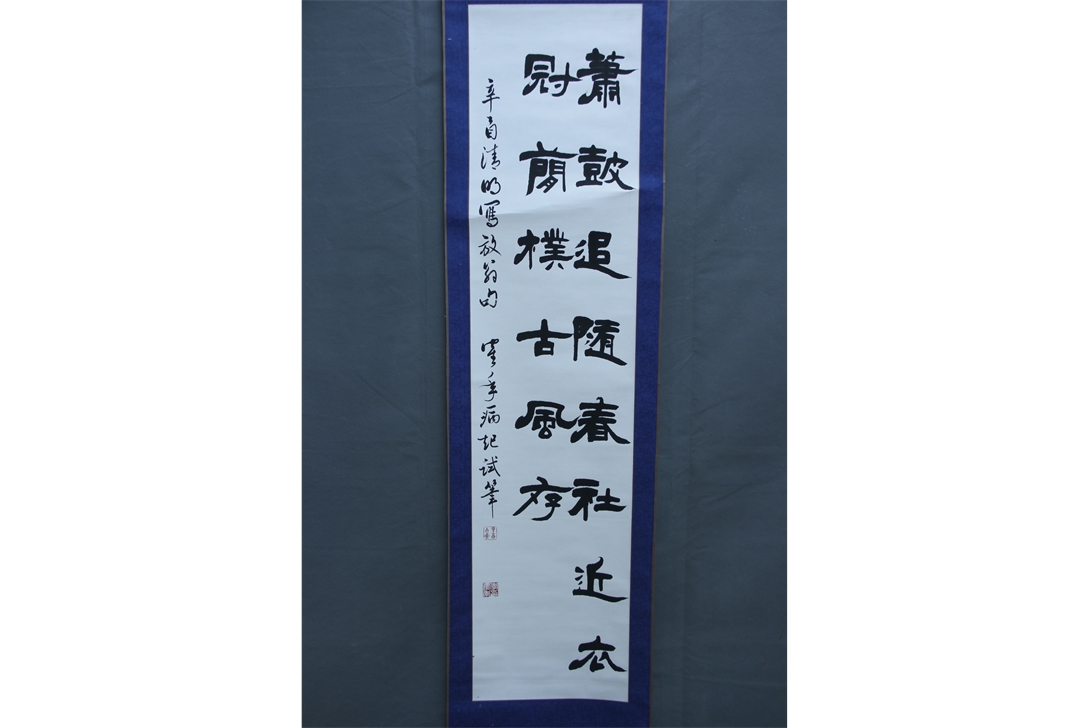 蕭鼓追隨春社近衣
冠簡樸古風存
辛酉清明寫放翁句 年病起試筆